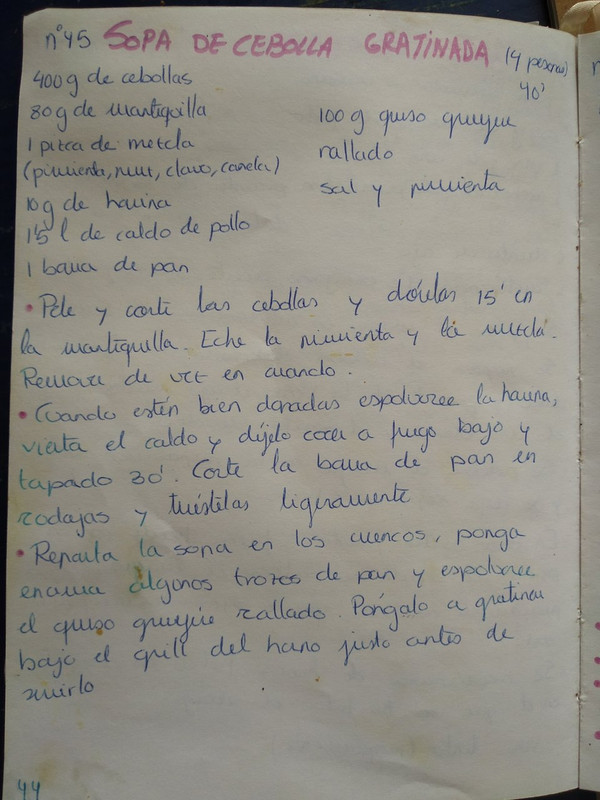 nº45 SOPA DE CEBOLLA GRATINADA (4 personas)
40'
400 g de cebollas
80 g de mantequilla
1 pizca de mezcla
(pimienta, nuez, clavo, canela)
10 g de harina
1'5 l de caldo de pollo
1 barra de pan
100 g queso gruyère
rallado
sal y pimienta
• Pele y corte las cebollas y dórelas 15' en
la mantequilla. Eche la pimienta y la mezcla.
Remover de vez en cuando.
• Cuando estén bien doradas espolvoree la harina,
vierta el caldo y déjelo cocer a fuego bajo y
tapado 30'. Corte la barra de pan en
rodajas y tuéstelas ligeramente
• Reparta la sopa en los cuencos, ponga
encima algunos trozos de pan y espolvoree
el queso gruyère rallado. Póngalo a gratinar
bajo el grill del horno justo antes de
servirlo
44